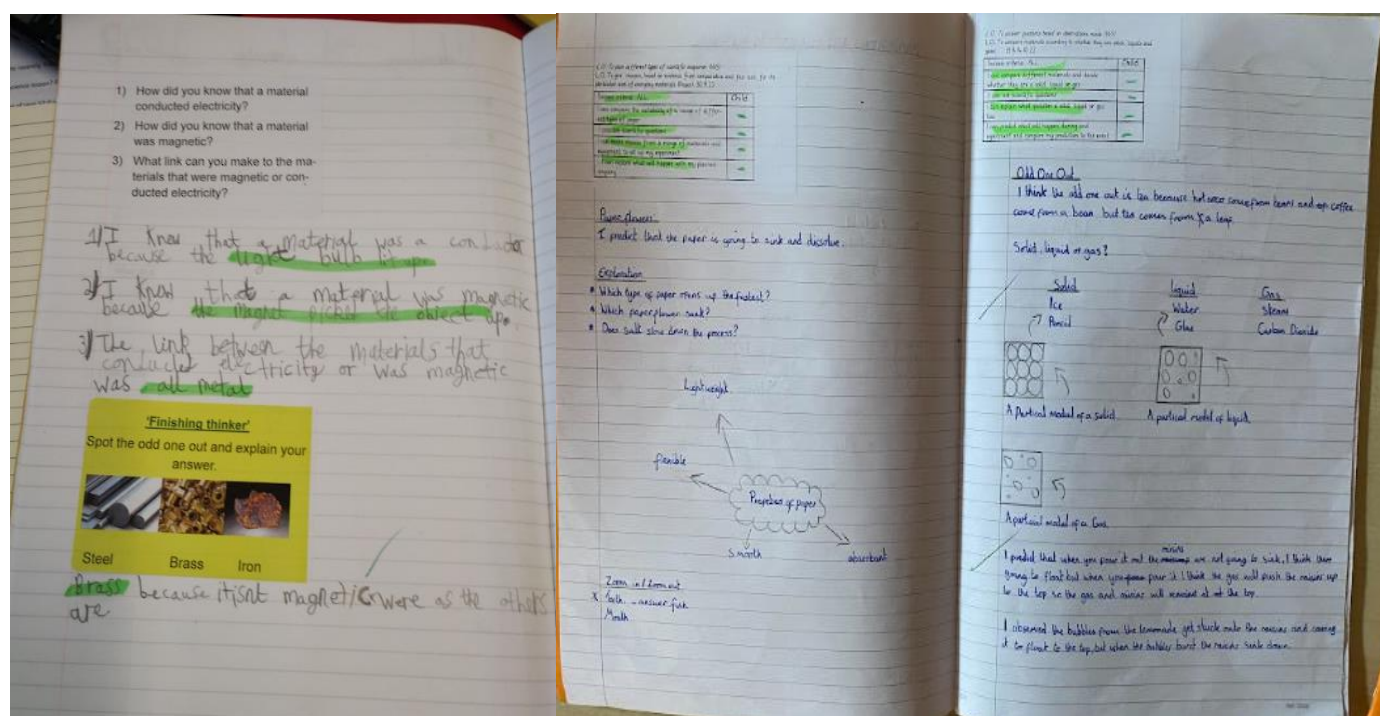 1) How did you know that a material
conducted electricity?
2) How did you know that a material
was magnetic?
3) What link can you make to the ma-
terials that were magnetic or con-
ducted electricity?
1) I know that a material was a conductor
because the light bulb lit up.
2) I know that a material was magnetic
because the magnet picked the object up.
3) The link between the materials that
conducted electricity or was magnetic
was all metal
'Finishing thinker'
Spot the odd one out and explain your
answer.
Steel Brass Iron
Brass because it isnt magnetic were as the others
are
Success criteria: ALL Child
Paper flowers
I predict that the paper is going to sink and dissolve.
Exploration
Which type of paper opens up the fastest?
Which paper flower sunk?
Does salt slow down the process?
Light weight
flexible
Properties of paper
Smooth
absorbant
Zoom in / Zoom out
Month
Success criteria: ALL Child
I can compare different materials and decide
whether they are a solid, liquid or gas
Odd One Out
I think the odd one out is tea because hot coco come from beans and coffee
come from a bean but tea comes from a leaf.
Solid, liquid or gas?
Solid liquid Gas
Ice Water Steam
Pencil Glue Carbon Dioxide
A partical model of a solid. A partical model of liquid.
A partical model of a Gas.
I predict that when you pour it out the raisins are not going to sink, I think there
going to float but when you pour it I think the gas will push the raisins up
to the top so the gas and raisins will remain at the top.
I observed the bubbles from the lemonade get stuck onto the raisins and causing
it to float to the top, but when the bubbles burst the raisins sunk down.